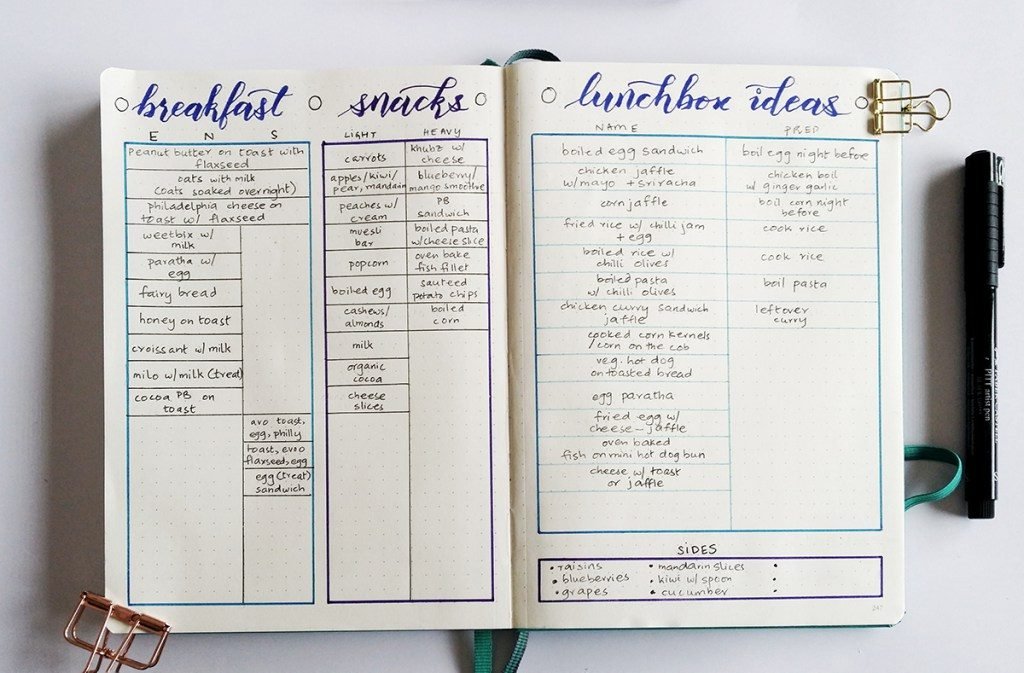 breakfast
E N S
Peanut butter on toast with
flaxseed
oats with milk
(oats soaked overnight)
philadelphia cheese on
toast w/ flaxseed
weetbix w/
milk
paratha w/
egg
fairy bread
honey on toast
croissant w/ milk
milo w/ milk (treat)
cocoa PB on
toast
avo toast,
egg, philly
toast, evoo
flaxseed, egg
egg (treat)
sandwich
snacks
LIGHT
carrots
apples/kiwi/
pear, mandarin
peaches w/
cream
muesli
bar
popcorn
boiled egg
cashews/
almonds
milk
organic
cocoa
cheese
slices
HEAVY
khubz w/
cheese
blueberry/
mango smoothie
PB
sandwich
boiled pasta
w/cheese slice
oven bake
fish fillet
sauteed
potato chips
boiled
corn
lunchbox ideas
NAME
boiled egg sandwich
chicken jaffle
w/mayo + sriracha
corn jaffle
fried rice w/ chilli jam
+ egg
boiled rice w/
chilli olives
boiled pasta
w/ chilli olives
chicken curry sandwich
jaffle
cooked corn kernels
/corn on the cob
veg. hot dog
on toasted bread
egg paratha
fried egg w/
cheese - jaffle
oven baked
fish on mini hot dog bun
cheese w/ toast
or jaffle
PREP
boil egg night before
chicken boil
w/ ginger garlic
boil corn night
before
cook rice
cook rice
boil pasta
leftover
curry
SIDES
• raisins • mandarin slices •
• blueberries • kiwi w/ spoon •
• grapes • cucumber •
247
PITT artist pen